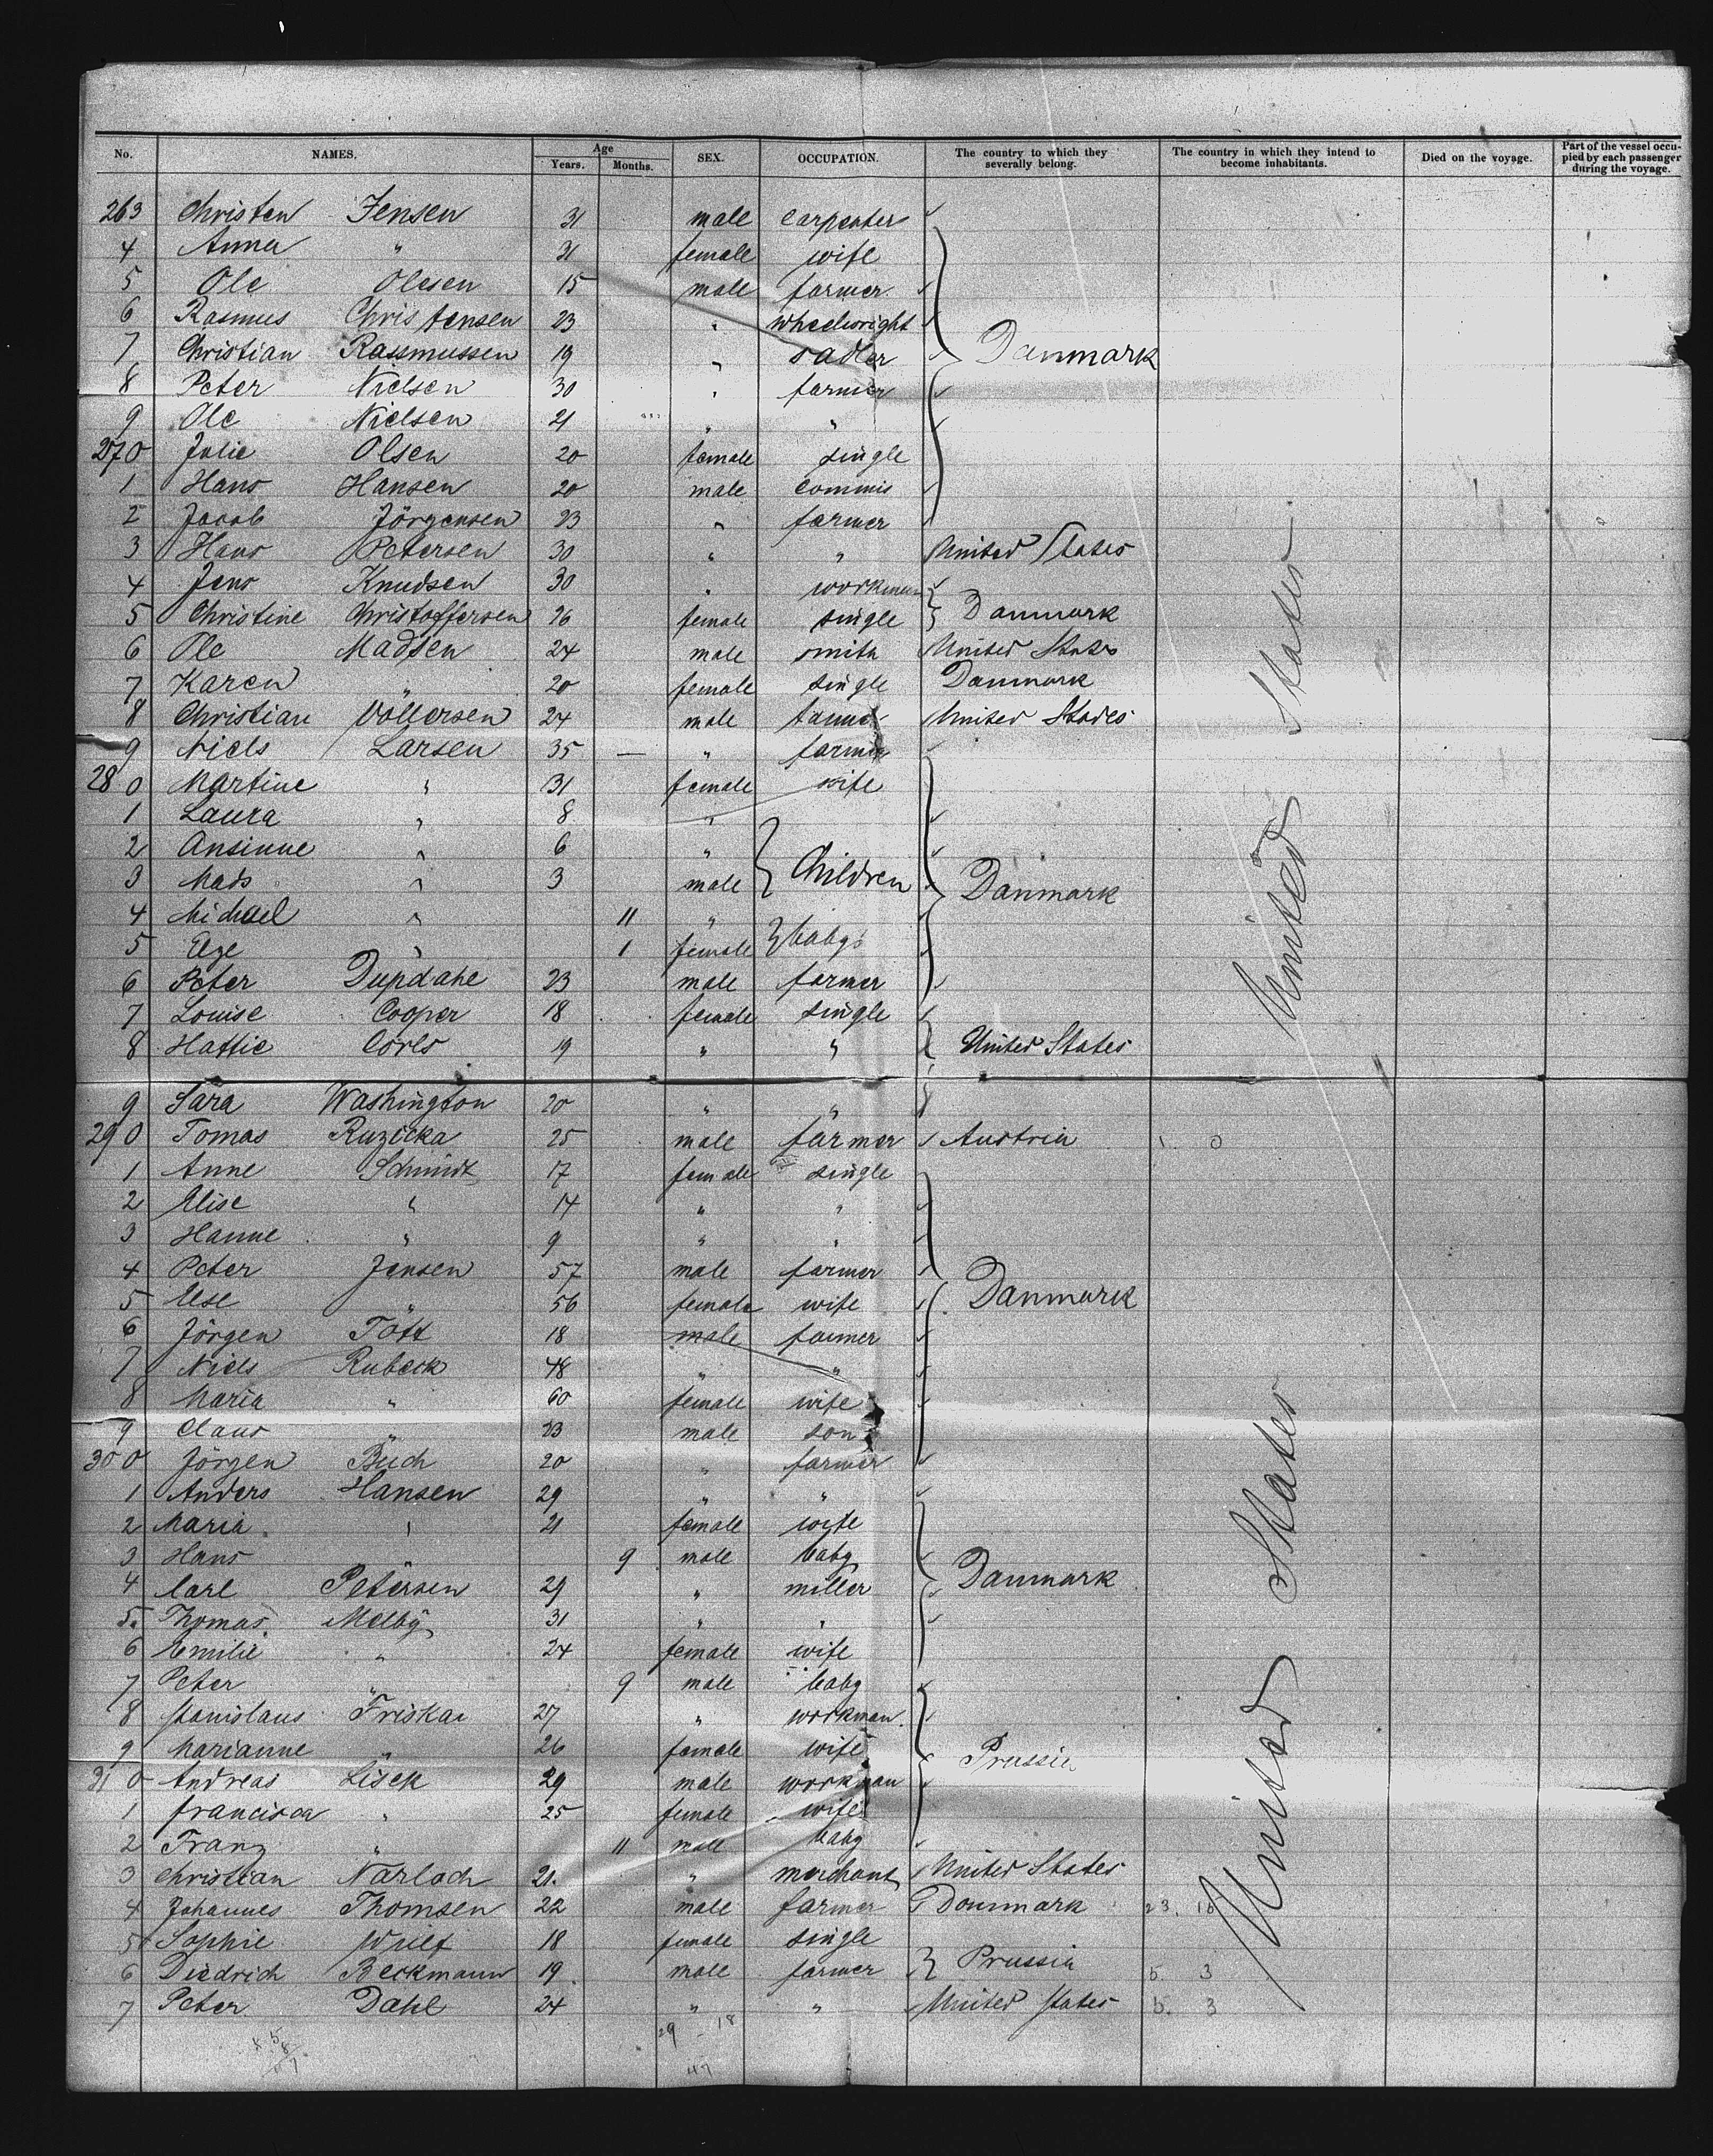 No. NAMES. Age Years. Months. SEX. OCCUPATION. The country to which they severally belong. The country in which they intend to become inhabitants. Died on the voyage. Part of the vessel occupied by each passenger during the voyage.
263 Christen Jensen 31 male carpenter
4 Anna " 31 female wife
5 Ole Olesen 15 male farmer
6 Rasmus Christensen 23 " wheelwright
7 Christian Rassmussen 19 " sadler Danmark
8 Peter Nielsen 30 " farmer
9 Ole Nielsen 21 " "
270 Julie Olsen 20 female single
1 Hans Hansen 20 male commis
2 Jacob Jörgensen 23 " farmer
3 Hans Petersen 30 " " United States
4 Jens Knudsen 30 " workman
5 Christine Christoffersen 26 female single Danmark
6 Ole Madsen 24 male smith United States
7 Karen " 20 female single Danmark
8 Christian Vollersen 24 male United States
9 Niels Larsen 35 — " farmer
280 Martine " 31 female wife
1 Laura " 8 "
2 Ansinne " 6 "
3 Mads " 3 male Children Danmark
4 Michael " 11 "
5 Elze " 1 female babys
6 Peter Dupdahl 23 male farmer
7 Louise Cooper 18 female single
8 Hattie 19 " " United States
9 Sara Washington 20 " "
290 Tomas Ruzicka 25 male farmer Austria
1 Anne Schmidt 17 female single
2 Elise " 14 " "
3 Hanne " 9 " "
4 Peter Jensen 57 male farmer
5 Else " 56 female wife Danmark
6 Jörgen Toft 18 male farmer
7 Niels Rubeck 48 " "
8 Maria " 60 female wife
9 Claus " 23 male son
300 Jörgen Buch 20 " farmer
1 Anders Hansen 29 " "
2 Maria " 21 female wife
3 Hans " 9 male baby
4 Carl Petersen 29 " miller Danmark
5 Thomas Melby 31 " "
6 Emilie " 24 female wife
7 Peter " 9 male baby
8 Stanislaus Friska 27 " workman
9 Marianne " 26 female wife Prussia
310 Andreas Lisek 29 male workman
1 Francisca " 25 female wife
2 Franz " 11 male baby
3 Christian Narloch 21 " merchant United States
4 Johannes Thomsen 22 male farmer Danmark 23.
5 Sophie Wulf 18 female single
6 Diedrich Beckmann 19 male farmer Prussia 5. 3
7 Peter Dahl 24 " " United States 5. 3
United States
United States
29 18
47